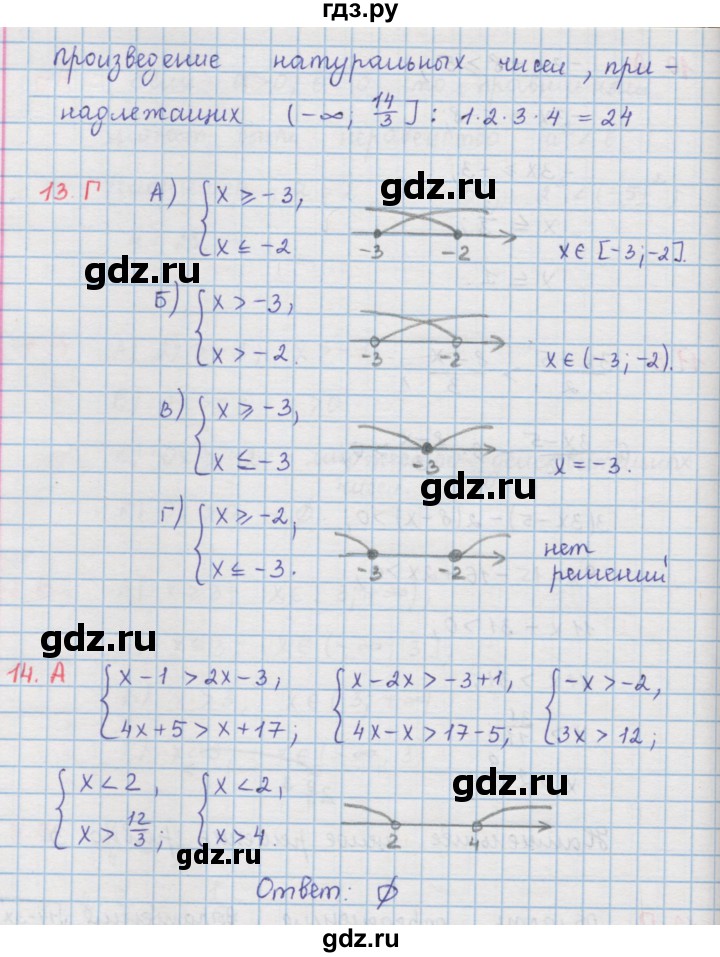 гдз.ру
произведение натуральных чисел, при-
надлежащих (-∞; 14/3]: 1·2·3·4 = 24
13. Г А) { x ≥ -3, x ≤ -2 -3 -2 x ∈ [-3; -2].
gdz.ru
gdz.ru
Б) { x > -3, x > -2. -3 -2 x ∈ (-3; -2).
gdz.ru
В) { x ≥ -3, x ≤ -3 -3 x = -3.
gdz.ru
Г) { x ≥ -2, x ≤ -3. -3 -2 нет решений
gdz.ru
14. А { x - 1 > 2x - 3, 4x + 5 > x + 17; { x - 2x > -3 + 1, 4x - x > 17 - 5; { -x > -2, 3x > 12;
gdz.ru
{ x < 2, x > 12/3; { x < 2, x > 4. 2 4
gdz.ru
Ответ: ∅
gdz.ru